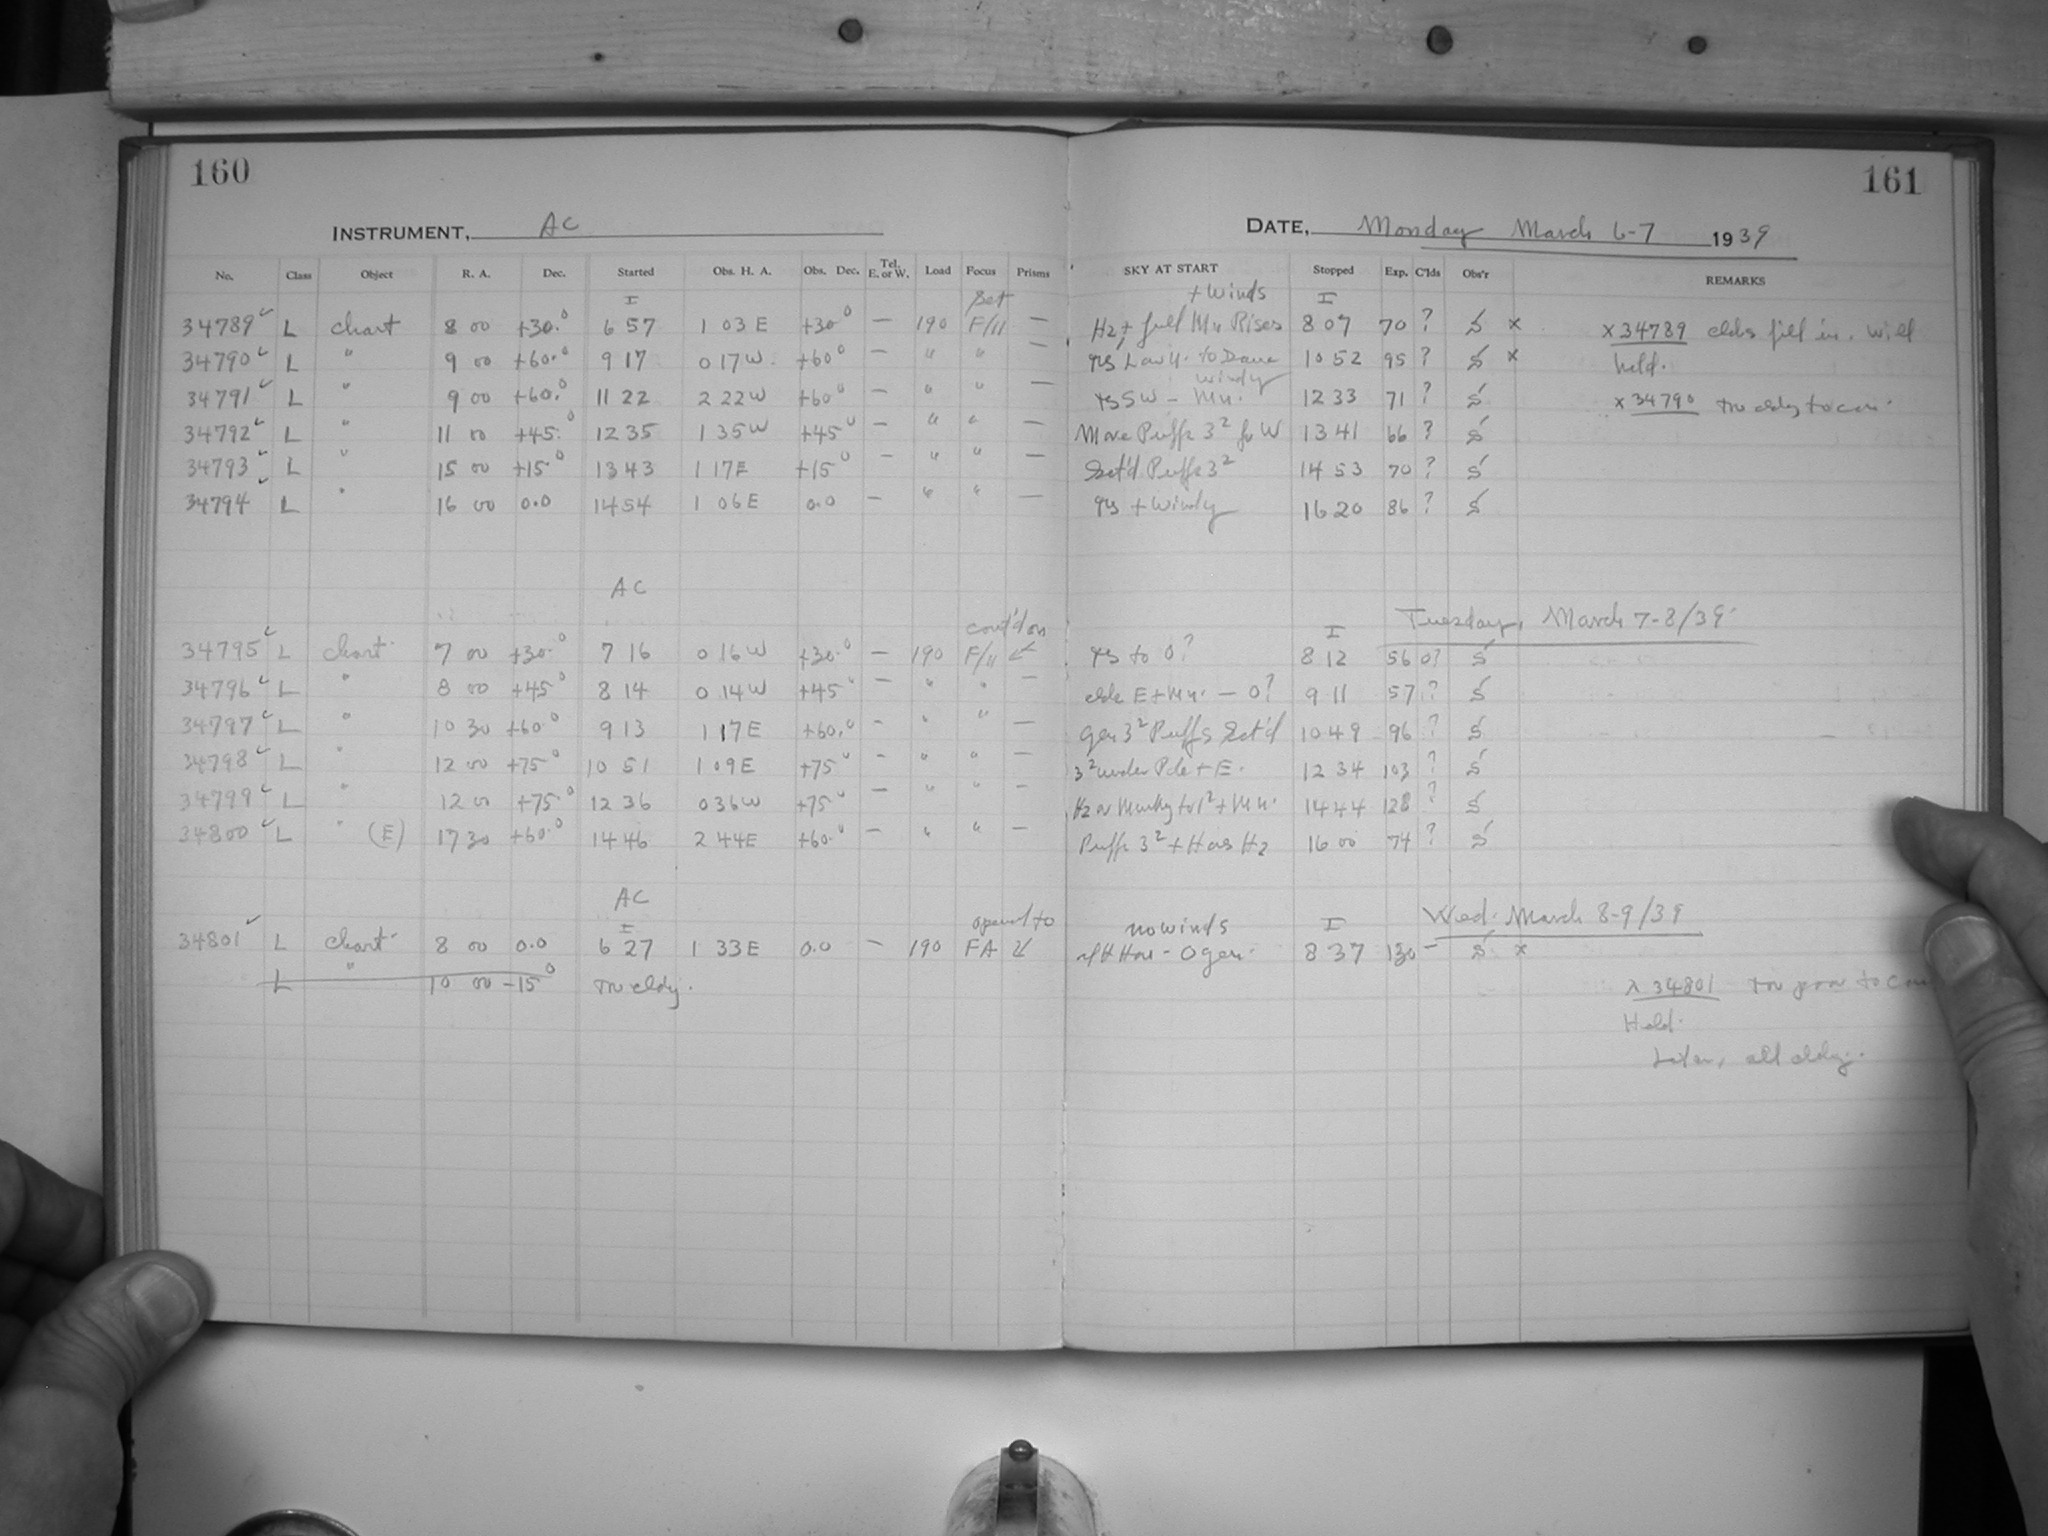 160 161
INSTRUMENT, AC DATE, Monday March 6-7 1939
No. Class Object R. A. Dec. Started Obs. H. A. Obs. Dec. Tel. E. or W. Load Focus Prisms SKY AT START Stopped Exp. C'lds Obs'r REMARKS
I set + Winds I
34789 ✓ L chart 8 00 +30.0 6 57 1 03 E +30.0 — 190 F/11 — H2, + full Mn Rises 8 07 70 ? S x x 34789 clds fill in. Will
34790 ✓ L " 9 00 +60.0 9 17 0 17 W. +60.0 — " " — to 10 52 95 ? S x held.
windy
34791 ✓ L " 9 00 +60.0 11 22 2 22 W +60.0 — " " — SW - Mn. 12 33 71 ? S x 34790 too cldy to con.
34792 ✓ L " 11 00 +45.0 12 35 1 35 W +45.0 — " " — More Puffs 3² fr W 13 41 66 ? S
34793 ✓ L " 15 00 +15.0 13 43 1 17 E +15.0 — " " — Sct'd Puffs 3² 14 53 70 ? S
34794 ✓ L " 16 00 0.0 14 54 1 06 E 0.0 — " " — + Windy 16 20 86 ? S
AC
cont'd on I Tuesday, March 7-8/39
34795 ✓ L chart 7 00 +30.0 7 16 0 16 W +30.0 — 190 F/11 ↙ to 0? 8 12 56 0? S
34796 ✓ L " 8 00 +45.0 8 14 0 14 W +45.0 — " " — clds E + Mn. — 0? 9 11 57 ? S
34797 ✓ L " 10 30 +60.0 9 13 1 17 E +60.0 — " " — Gen 3² Puffs Sct'd 10 49 96 ? S
34798 ✓ L " 12 00 +75.0 10 51 1 09 E +75.0 — " " — 3² under Pole + E. 12 34 103 ? S
34799 ✓ L " 12 00 +75.0 12 36 0 36 W +75.0 — " " — H2 or Murky to 1² + Mn. 14 44 128 ? S
34800 ✓ L " (E) 17 30 +60.0 14 46 2 44 E +60.0 — " " — Puffs 3² + Has H2 16 00 74 ? S
AC
I opened to no winds I Wed. March 8-9/39
34801 ✓ L chart 8 00 0.0 6 27 1 33 E 0.0 — 190 FA ↙ Hor - 0 gen. 8 37 130 — S x
L " 10 00 -15.0 Too cldy. x 34801 too poor to con
Held.
Later, all cldy.